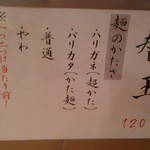 替玉
120
麺のかたさ
・ハリガネ(超かた)
・バリカタ(かた麺)
・普通
・やわ